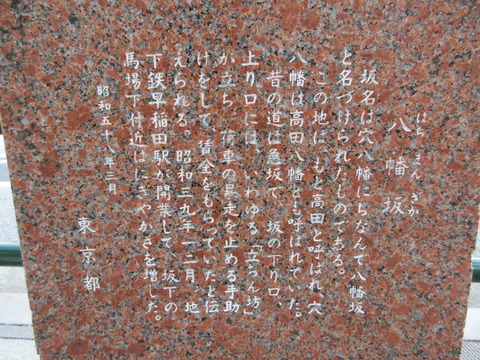 はちまんざか
八幡坂
坂名は穴八幡にちなんで八幡坂
と名づけられたものである。
この地は、もと高田と呼ばれ、穴
八幡は高田八幡とも呼ばれていた。
昔の道は急坂で、坂の下り口、
上り口には、いわゆる「立ちん坊」
か立ち、荷車の暴走を止める手助
けをして、賃金をもらっていたと伝
えられる。昭和三九年一二月、地
下鉄早稲田駅が開業して、坂下の
馬場下付近はにぎやかさを増した。
昭和五十八年三月
東京都